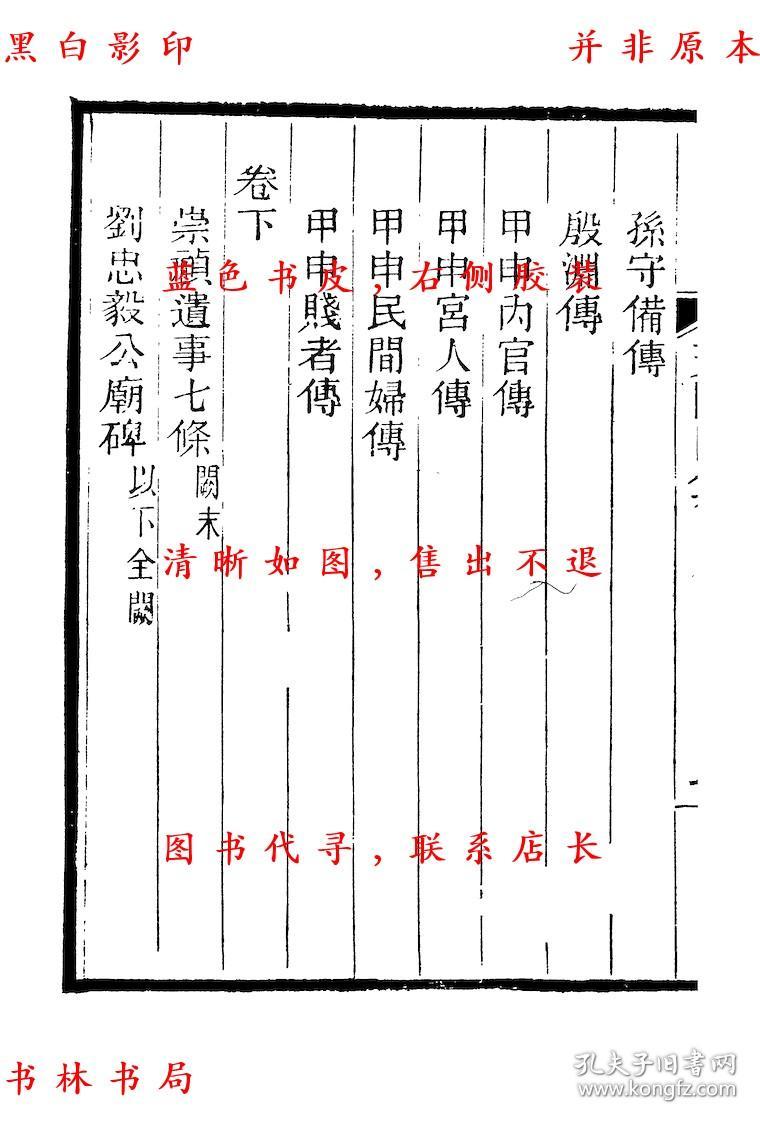 黑白影印
并非原本
孫守備傳
殷淵傳
甲申內官傳
甲申宮人傳
甲申民間婦傳
甲申賤者傳
卷下
崇禎遺事七條 闕末
劉忠毅公廟碑 以下全闕
蓝色书皮,右侧胶装
清晰如图,售出不退
图书代寻,联系店长
书林书局
孔夫子旧书网
www.kongfz.com